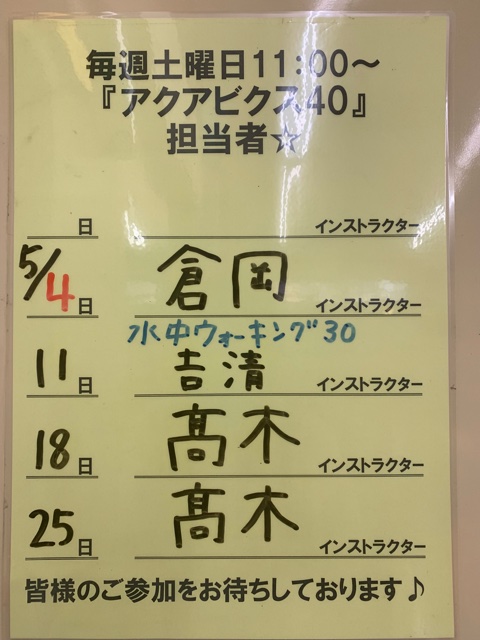 毎週土曜日11:00～
『アクアビクス40』
担当者☆
日 インストラクター
5/4日 倉岡 インストラクター
水中ウォーキング30
11日 吉清 インストラクター
18日 髙木 インストラクター
25日 髙木 インストラクター
皆様のご参加をお待ちしております♪